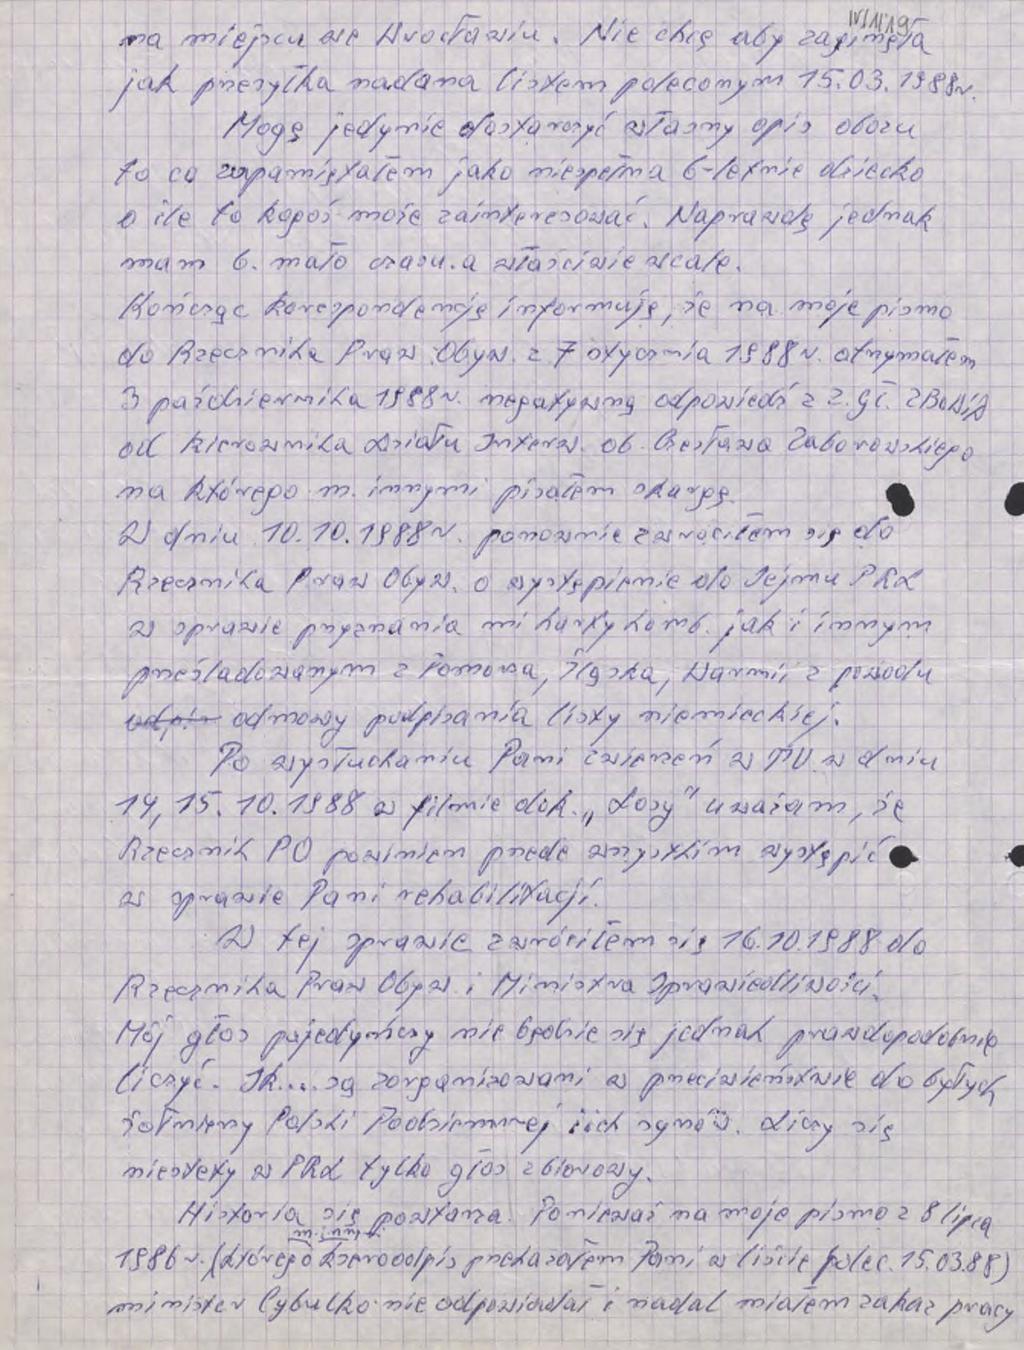 IV/11/19
na miejscu we Wrocławiu. Nie chcę aby zaginęła
jak przesyłka nadana listem poleconym 15.03.1988r.
Mogę jedynie dostarczyć własny opis obozu
to co zapamiętałem jako niespełna 6-letnie dziecko
o ile to kogoś może zainteresować. Naprawdę jednak
mam b. mało czasu a właściwie wcale.
Kończąc korespondencję informuję, że na moje pismo
do Rzecznika Praw Obyw. z 7 stycznia 1988r. otrzymałem
3 października 1988r. negatywną odpowiedź z Z.Gł. ZBoWiD
od kierownika działu Interw. ob. Czesława Zaborowskiego
na którego m. innymi pisałem skargę.
W dniu 10.10.1988r. ponownie zwróciłem się do
Rzecznika Praw Obyw. o wystąpienie do Sejmu PRL
w sprawie przyznania mi karty komb. jak i innym
prześladowanym z Pomorza, Śląska, Warmii z powodu
odmowy podpisania listy niemieckiej.
Po wysłuchaniu Pani zwierzeń w TV w dniu
14, 15.10.1988 w filmie dok. „Losy" uważam, że
Rzecznik PO powinien przede wszystkim wystąpić
w sprawie Pani rehabilitacji.
W tej sprawie zwróciłem się 16.10.1988 do
Rzecznika Praw Obyw. i Ministra Sprawiedliwości.
Mój głos pojedyńczy nie będzie się jednak prawdopodobnie
liczyć. Sk.... są zorganizowani w przeciwieństwie do byłych
żołnierzy Polski Podziemnej i ich synów. Liczy się
niestety w PRL tylko głos zbiorowy.
Historia się powtarza. Ponieważ na moje pismo z 8 lipca
m. inn.
1986r. (którego kseroodpis przekazałem Pani w liście polec. 15.03.88)
minister Cybulko nie odpowiadał i nadal miałem zakaz pracy